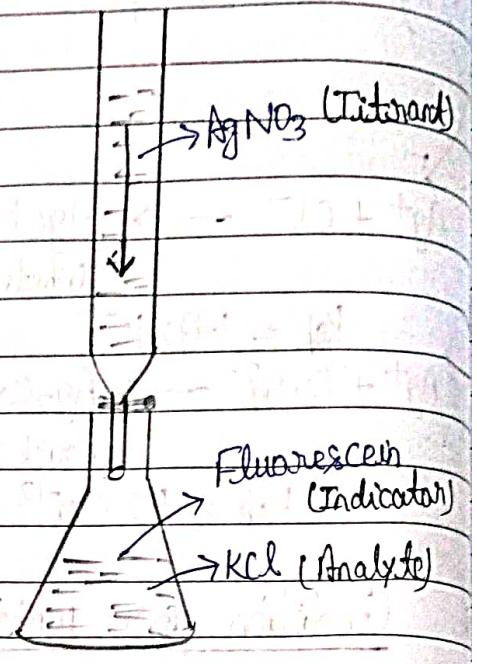 AgNO3 (Titrant)
Fluorescein
(Indicator)
KCl (Analyte)